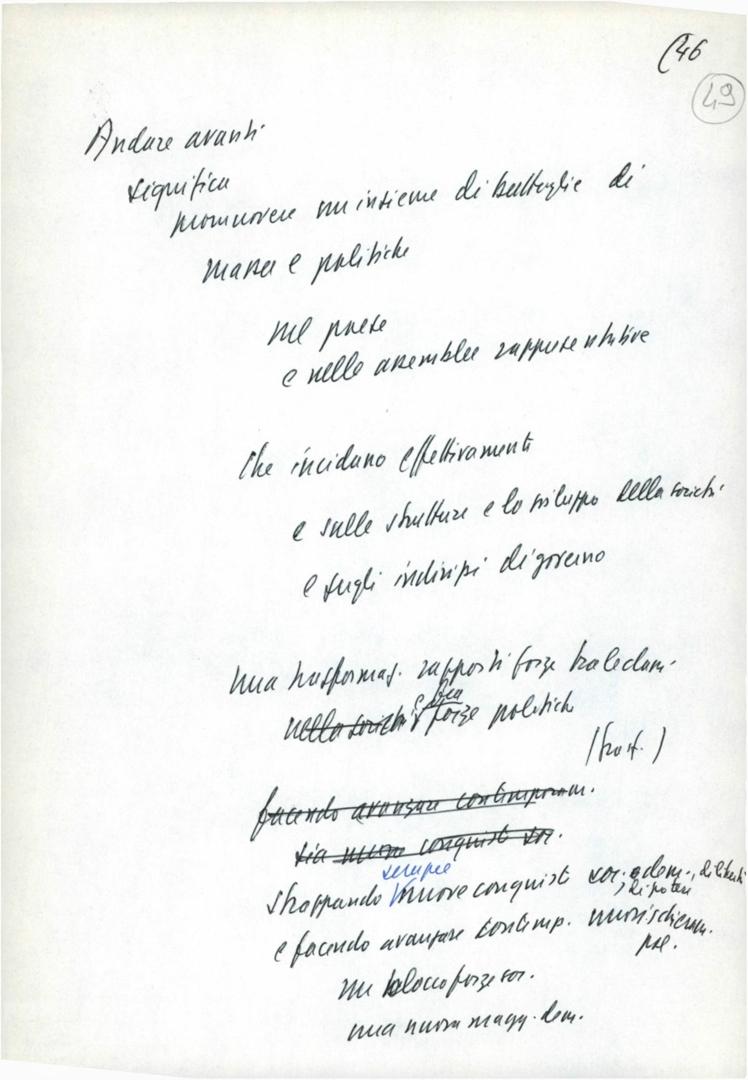 (46
49
Andare avanti
significa
promuovere un insieme di battaglie di
massa e politiche
nel paese
e nelle assemblee rappresentative
che incidano effettivamente
e sulle strutture e lo sviluppo della società
e sugli indirizzi di governo
una trasformaz. rapporti forze
nella società e fra forze politiche
facendo avanzare contemporan.
sia nuove conquiste soc.
sempre
strappando nuove conquiste soc. e dem., di libertà
di potere
e facendo avanzare contemp. nuovi schieram.
un blocco forze soc.
una nuova magg. dem.